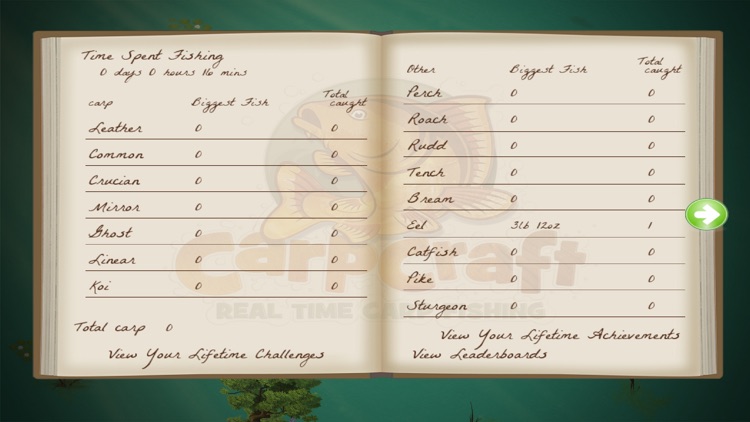 Time Spent Fishing
0 days 0 hours 16 mins
carp Biggest Fish Total caught
Leather 0 0
Common 0 0
Crucian 0 0
Mirror 0 0
Ghost 0 0
Linear 0 0
Koi 0 0
Total carp 0
View Your Lifetime Challenges
Other Biggest Fish Total caught
Perch 0 0
Roach 0 0
Rudd 0 0
Tench 0 0
Bream 0 0
Eel 3lb 12oz 1
Catfish 0 0
Pike 0 0
Sturgeon 0 0
View Your Lifetime Achievements
View Leaderboards
CarpCraft
REAL TIME CARP FISHING